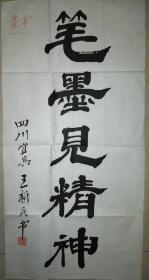 隶书
笔墨見精神
四川宜宾
王新民书